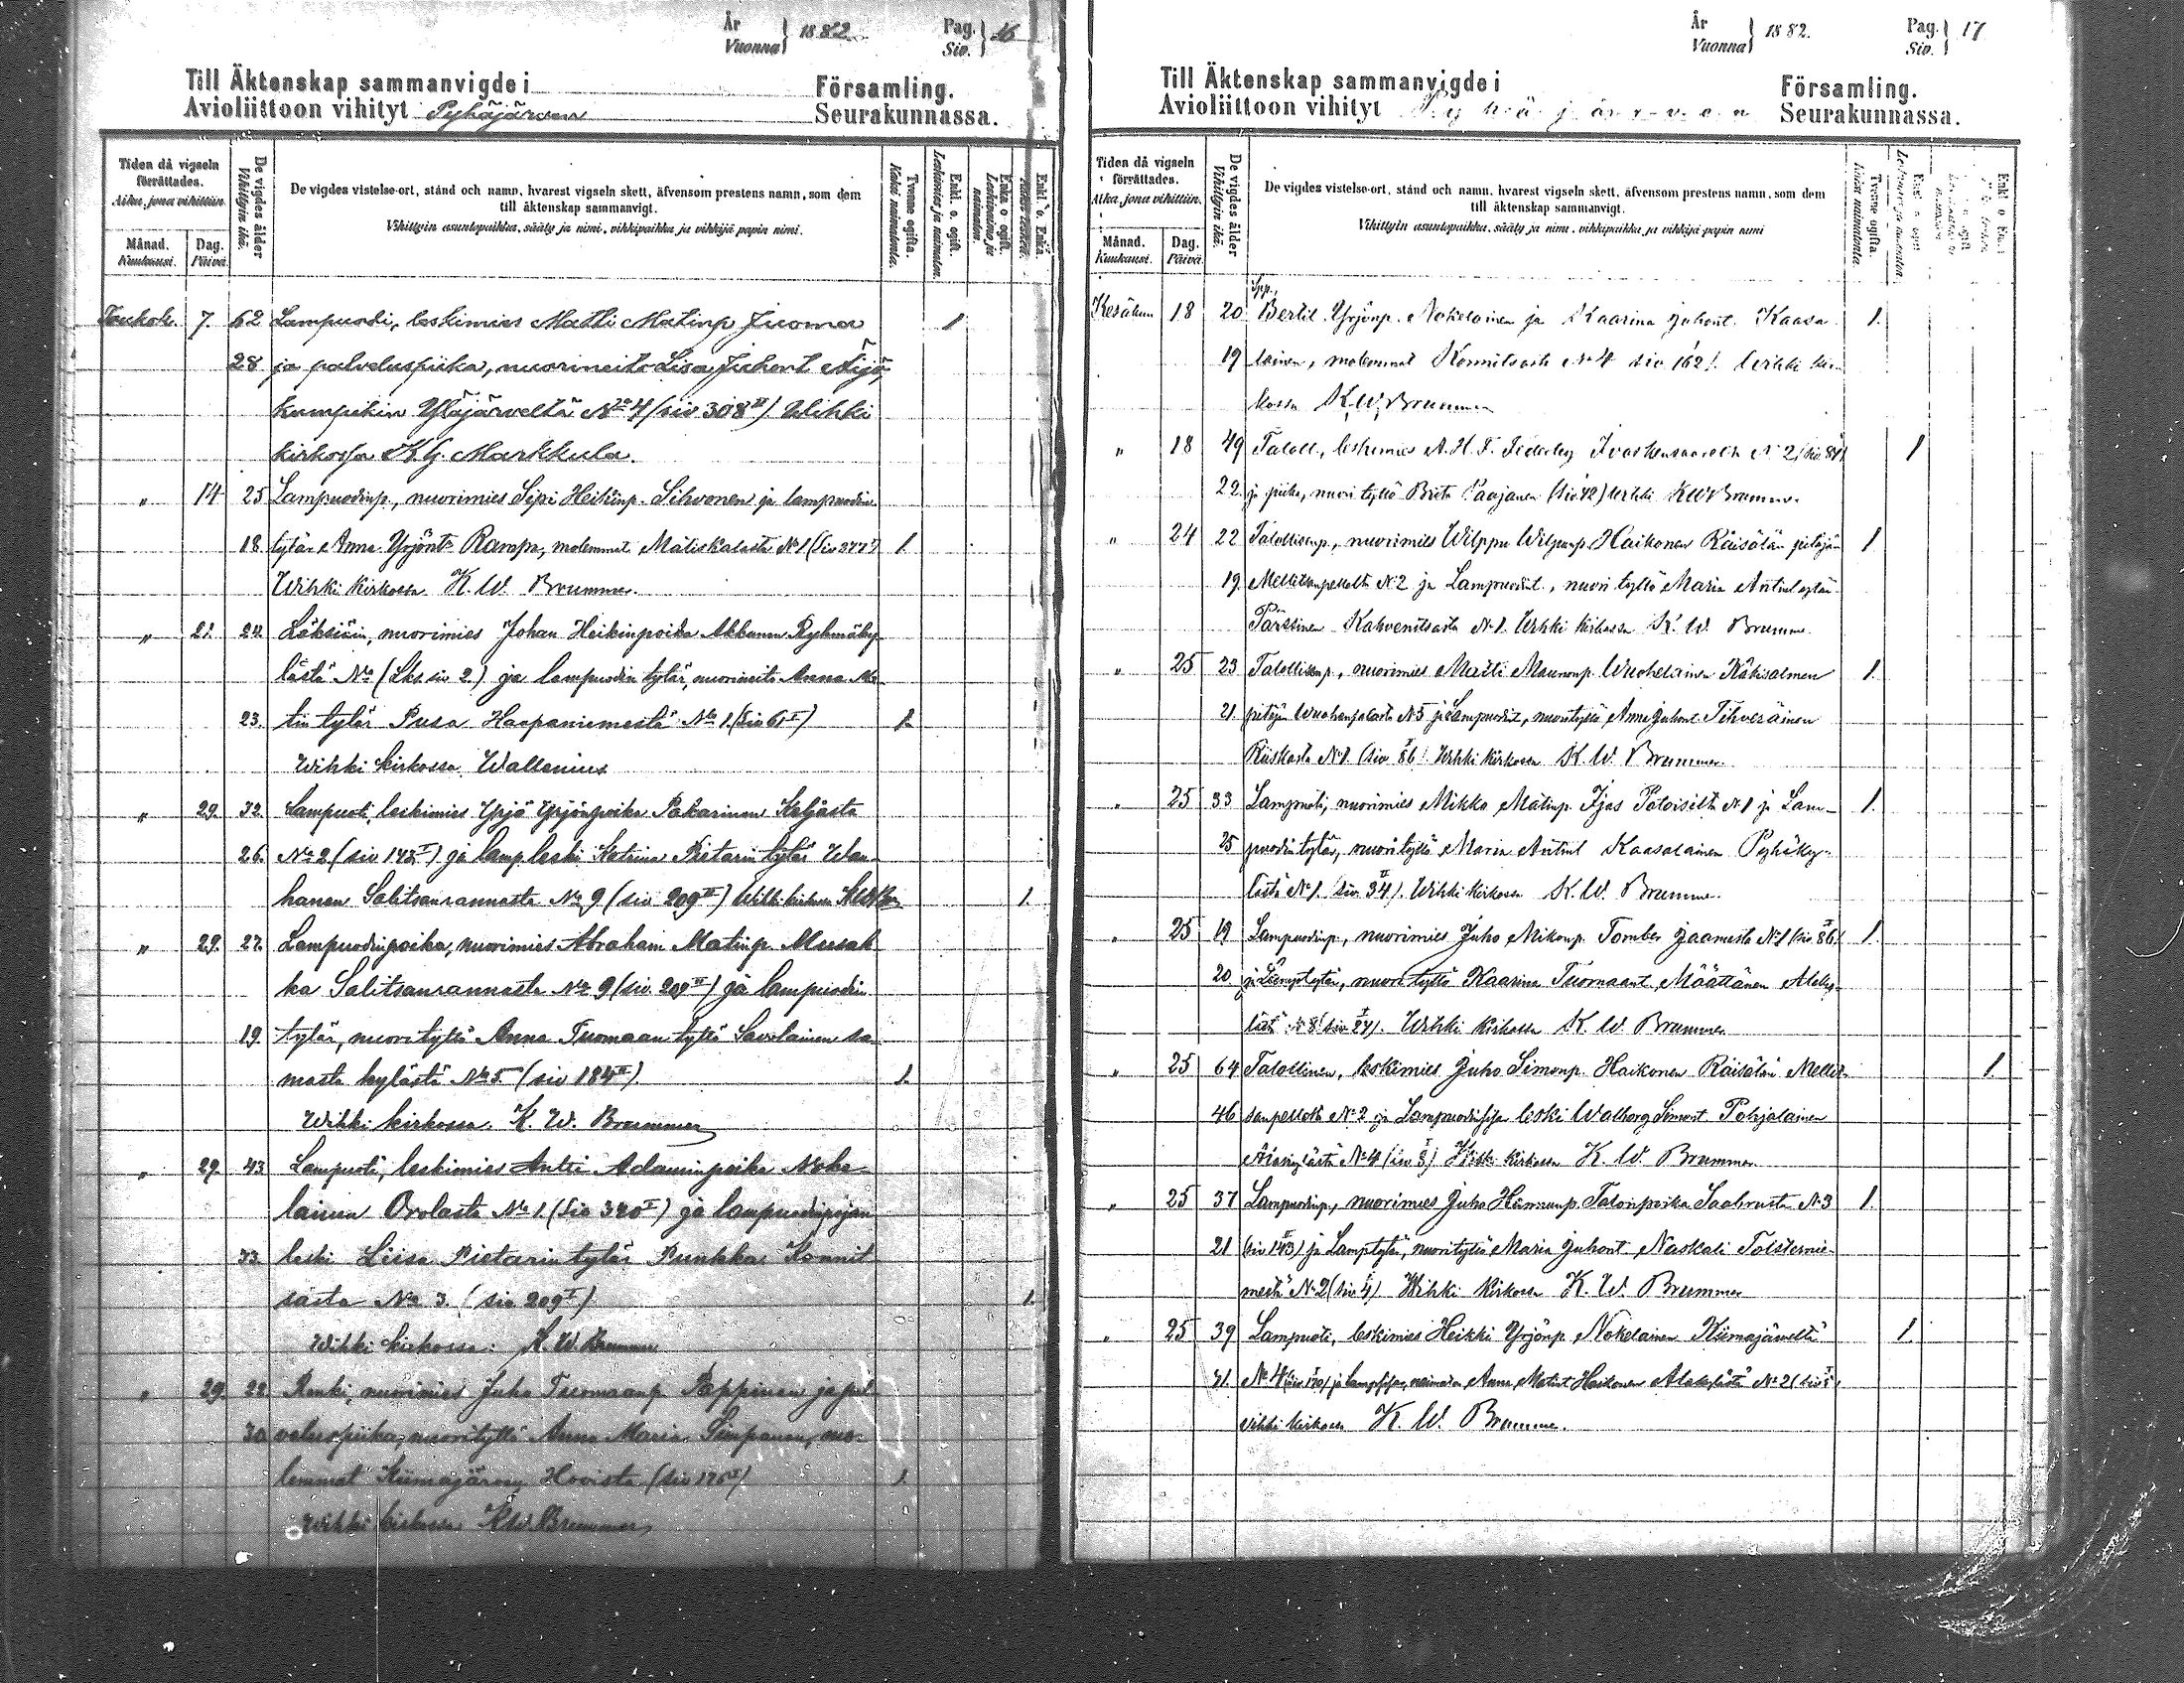 År
Vuonna
1882
Pag.
Siv.
16
Till Äktenskap sammanvigde i
Församling.
Avioliittoon vihityt Pyhäjärven Seurakunnassa.
Tiden då vigseln förrättades.
Aika, jona vihittiin.
Månad.
Kuukausi.
Dag.
Päivä.
De vigdes ålder
Vihittyin ikä.
De vigdes vistelse-ort, stånd och namn, hvarest vigseln skett, äfvensom prestens namn, som dem
till äktenskap sammanvigt.
Vihittyin asuntopaikka, sääty ja nimi, vihkipaikka ja vihkijä papin nimi.
Tvenne ogifta.
Kaksi naimatonta.
Enkl. o. ogift.
Leskimies ja naimaton.
Enka o ogift.
Leskivaimo ja naimaton.
Enkl. o. Enka.
Toukok. 7. 62 Lampuodi, leskimies Matti Matinp Juoma 1
28 ja palveluspiika, nuorineito Lisa Juhont Äijö,
kumpikin Yläjärveltä No 4 (siv 308 II) Wihki
kirkossa K.G. Markkula.
" 14 25 Lampuodinp., nuorimies Sipi Heikinp. Sihvonen ja lampuodin
18 tytär Anna Yrjönt. Rampa, molemmat Matiskalasta No 1 (Siv 377) 1.
Wihki kirkossa K. W. Brummer.
" 21. 24. nuorimies Johan Heikinpoika Akkanen Ryhmäky-
lästä No (Lks. siv 2.) ja lampuodin tytär, nuorineito Anna Ma-
23. tin tytär Pusa Haapaniemestä No 1. (siv 61 I) 1.
Wihki kirkossa Wallenius
" 29. 32. Lampuoti, leskimies Yrjö Yrjönpoika Pakarinen Keljasta
26. No 2 (siv 142 I) ja lamp leski Katrina Pietarin tytär Wan-
hanen Salitsanrannasta No 9 (siv 209 II) Wihki kirkossa 1.
" 29. 27. Lampuodinpoika, nuorimies Abraham Matinp. Musak-
ka Salitsanrannasta No 9 (siv. 209 II) ja lampuodin
19. tytär, nuori tyttö Anna Tuomaan tyttö Savolainen sa-
masta kylästä No 5 (siv 184 II) 1.
Wihki kirkossa. K. W. Brummer
" 29. 43. Lampuoti, leskimies Antti Adaminpoika Noke-
lainen Orolasta No 1. (Siv 320 I) ja lampuodinpojan
33. leski Liisa Pietarin tytär Punkka Konnit-
sasta No 3. (siv 209 I) 1.
Wihki kirkossa: K. W. Brummer
" 29. 22. Renki, nuorimies Juho Tuomaanp. Pappinen ja pal-
30 veluspiika, nuorityttö Anna Maria Simpanen, mo-
lemmat Kiimajärvy Hovista (siv 176 I) 1.
Wihki kirkossa K.W. Brummer
År
Vuonna
1882.
Pag.
Siv.
17
Till Äktenskap sammanvigde i
Församling.
Avioliittoon vihityt Pyhäjärven Seurakunnassa.
Tiden då vigseln förrättades.
Aika, jona vihittiin.
Månad.
Kuukausi.
Dag.
Päivä.
De vigdes ålder
Vihittyin ikä.
De vigdes vistelse-ort, stånd och namn, hvarest vigseln skett, äfvensom prestens namn, som dem
till äktenskap sammanvigt.
Vihittyin asuntopaikka, sääty ja nimi, vihkipaikka ja vihkijä papin nimi
Tvenne ogifta.
Kaksi naimatonta.
Kesäkuu 18 20 Bertil Yrjönp. Nokelainen ja Kaarina Juhont. Kaasa- 1.
19 lainen, molemmat Konnitsasta No 4 siv 162. Wihki kir-
kossa K.W. Brummer
" 18 49 Taloll., leskimies A. H. F. Federley Ivaskensaarelta No 2 (siv. 84) 1
22. ja piika, nuori tyttö Brita Paajanen (siv 42) wihki K W Brummer.
" 24 22 Talollisenp., nuorimies Wilppu Wilpunp. Haikonen Räisälän pitäjän 1
19. Mellitsanpellolta No 2 ja Lampuodint., nuori tyttö Maria Antintytär
Pärssinen Kahvenitsasta No 1. Wihki kirkossa K. W. Brummer
" 25 23 Talollisenp., nuorimies Matti Maununp. Wuohelainen Käkisalmen 1.
21. pitäjän Wuohensalosta No 5 ja Lampuodint., nuorityttö Anna Juhont. Tihveräinen
Riiskasta No 1 (siv 86). Wihki kirkossa K. W. Brummer.
" 25 33 Lampuoti, nuorimies Mikko Matinp. Ijas Potoisilta No 1 ja Lam- 1.
25 puodin tytär, nuori tyttö Maria Antint Kaasalainen Pyhäky-
lästä No 1. (siv. 34). Wihki kirkossa K. W. Brummer.
" 25 19 Lampuodinp., nuorimies Juho Mikonp. Tomber Jaamasta No 1 (siv. 86) 1.
20 ja Lamp.tytär, nuori tyttö Kaarina Tuomaant. Määttänen Alaky-
lästä No 8 (siv 24). Wihki kirkossa K. W. Brummer
" 25 64 Talollinen, leskimies Juho Simonp. Haikonen Räisälän Mellit- 1.
46 sanpellolta No 2 ja leski Walborg Simont Pohjalainen
Alakylästä No 4 (siv 8) Wihki kirkossa K. W. Brummer
" 25 37 Lampuodinp., nuorimies Juho Hannunp. Talonpoika Saahrusta No 3 1.
21 (siv 143) ja Lamp.tytär, nuorityttö Maria Juhont. Naskali Tolsternie-
mestä No 2 (siv 4) Wihki kirkossa K. W. Brummer
" 25 39 Lampuoti, leskimies Heikki Yrjönp. Nokelainen Kiimajärveltä 1.
No 4 (siv 170) ja Anna Matint Haikonen Alakylästä No 2 (siv 5)
wihki kirkossa K. W. Brummer.